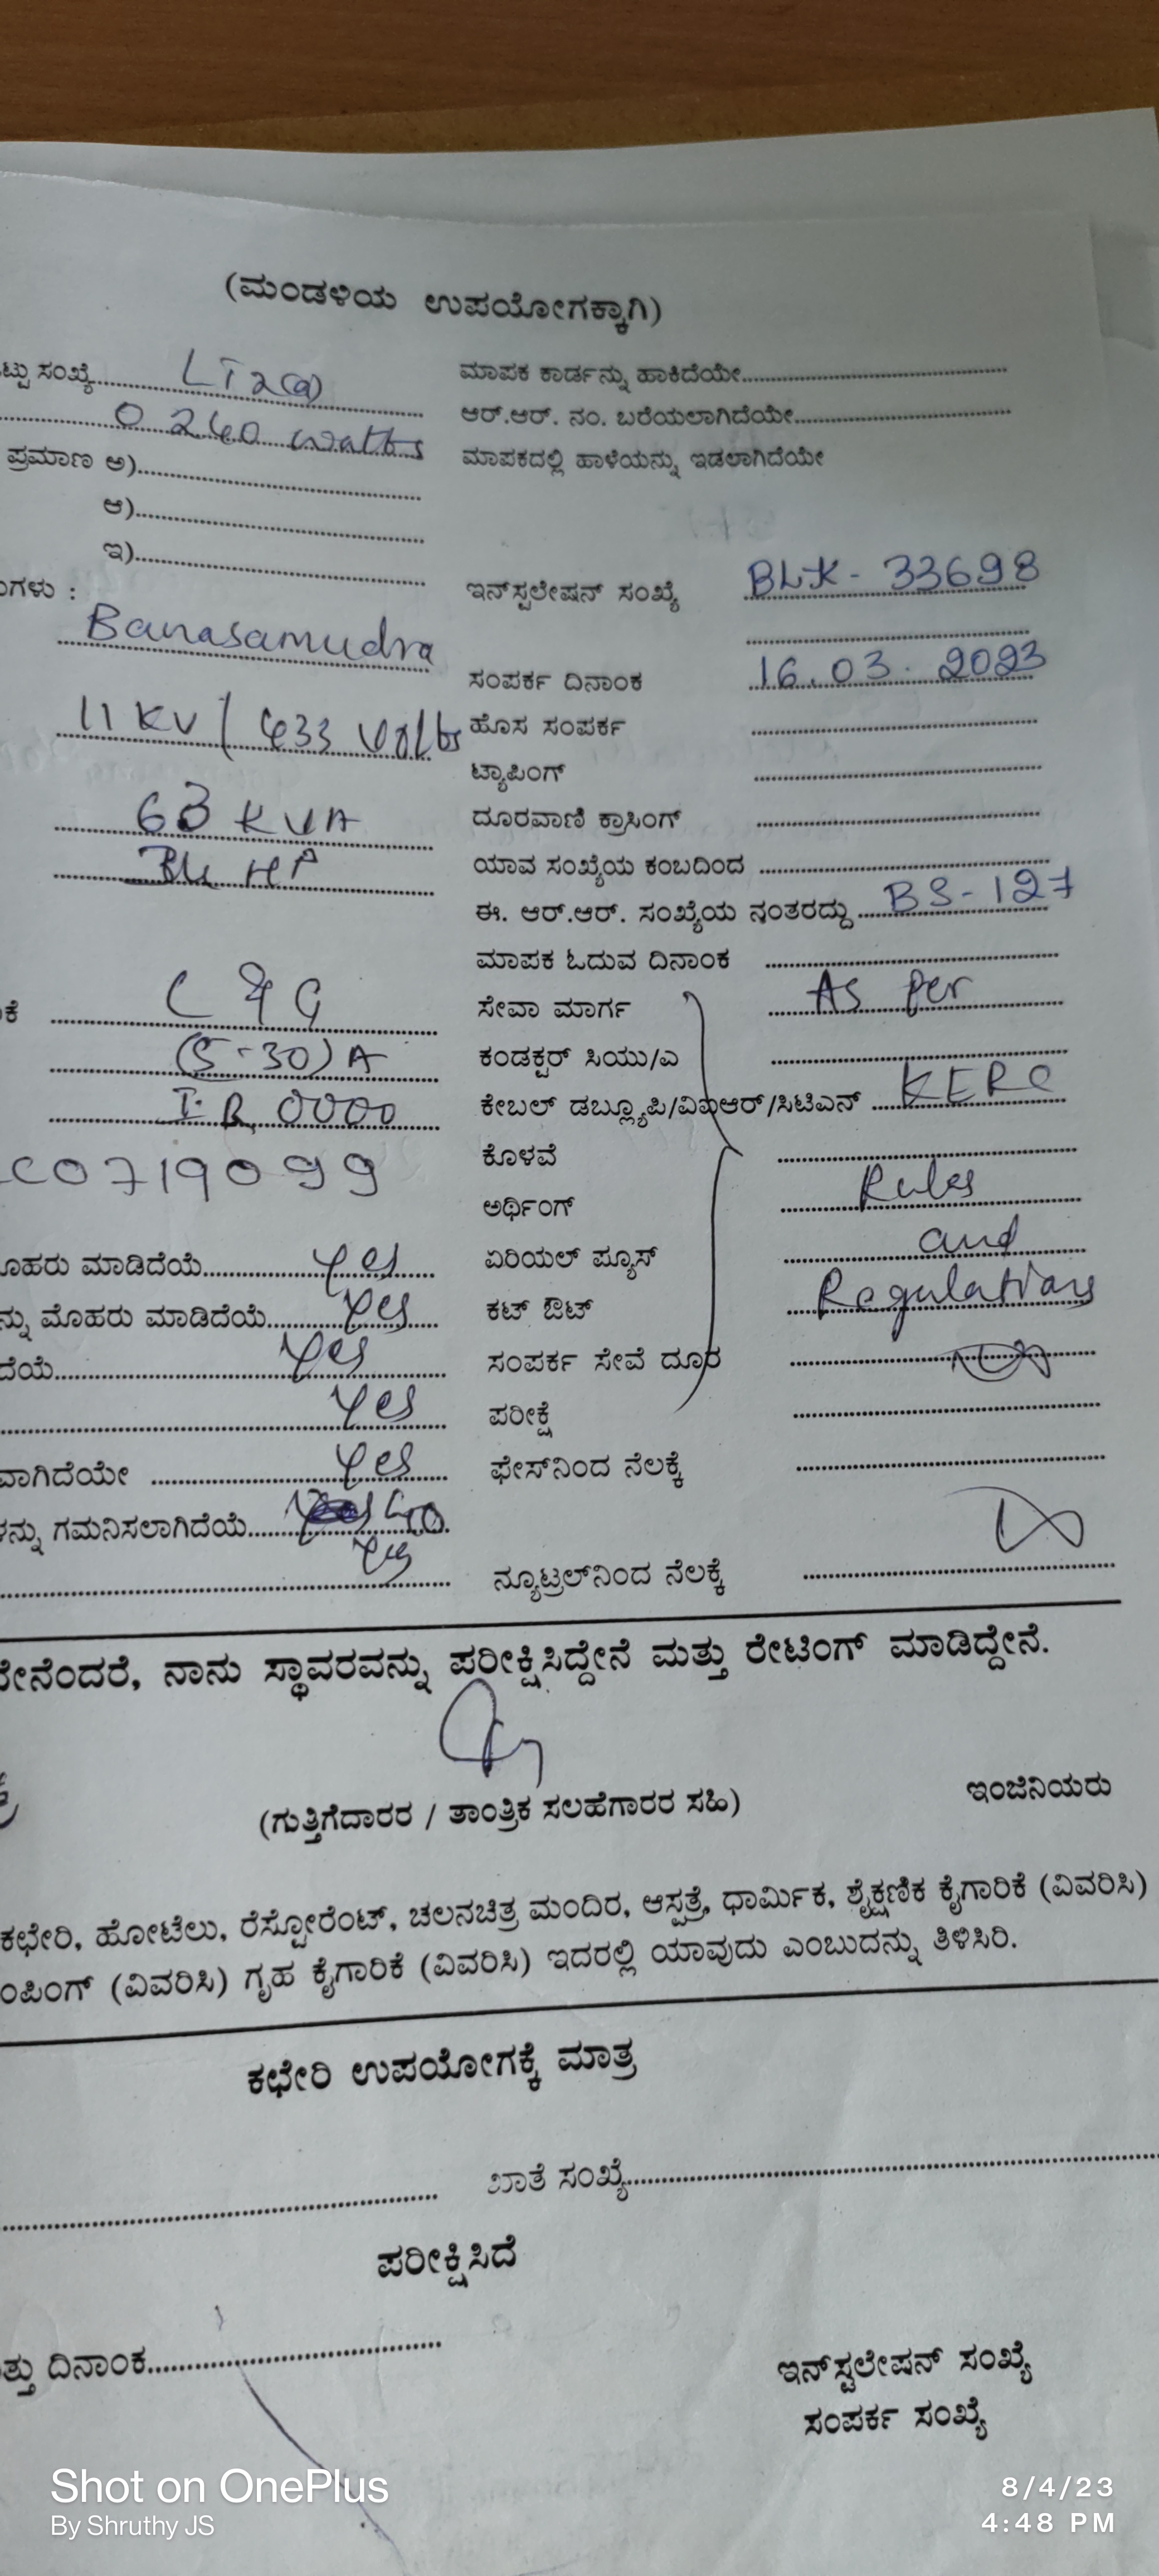 (ಮಂಡಳಿಯ ಉಪಯೋಗಕ್ಕಾಗಿ)
ಟ್ಟು ಸಂಖ್ಯೆ LT 2(a) ಮಾಪಕ ಕಾರ್ಡನ್ನು ಹಾಕಿದೆಯೇ
0.240 watts ಆರ್.ಆರ್. ನಂ. ಬರೆಯಲಾಗಿದೆಯೇ
ಪ್ರಮಾಣ ಅ) ಮಾಪಕದಲ್ಲಿ ಹಾಳೆಯನ್ನು ಇಡಲಾಗಿದೆಯೇ
ಆ)
ಇ)
ಗಳು : ಇನ್‌ಸ್ಟಲೇಷನ್ ಸಂಖ್ಯೆ BLK - 33698
Banasamudra
ಸಂಪರ್ಕ ದಿನಾಂಕ 16.03.2023
11 KV / 433 Volts ಹೊಸ ಸಂಪರ್ಕ
ಟ್ಯಾಪಿಂಗ್
63 KVA ದೂರವಾಣಿ ಕ್ರಾಸಿಂಗ್
HP ಯಾವ ಸಂಖ್ಯೆಯ ಕಂಬದಿಂದ
ಈ. ಆರ್.ಆರ್. ಸಂಖ್ಯೆಯ ನಂತರದ್ದು BS-127
ಮಾಪಕ ಓದುವ ದಿನಾಂಕ
ಕೆ L&G ಸೇವಾ ಮಾರ್ಗ As per
(5-30) A ಕಂಡಕ್ಟರ್ ಸಿಯು/ಎ
I.R 0000 ಕೇಬಲ್ ಡಬ್ಲ್ಯೂಪಿ/ವಿಐಆರ್/ಸಿಟಿಎನ್ KERC
C0719099 ಕೊಳವೆ
ಅರ್ಥಿಂಗ್ Rules
ಊಹರು ಮಾಡಿದೆಯೆ yes ಏರಿಯಲ್ ಪ್ಯೂಸ್ and
ನ್ನು ಮೊಹರು ಮಾಡಿದೆಯೆ yes ಕಟ್ ಔಟ್ Regulations
ದೆಯೆ yes ಸಂಪರ್ಕ ಸೇವೆ ದೂರ
yes ಪರೀಕ್ಷೆ
ವಾಗಿದೆಯೇ yes ಫೇಸ್‌ನಿಂದ ನೆಲಕ್ಕೆ
ನ್ನು ಗಮನಿಸಲಾಗಿದೆಯೆ
yes ನ್ಯೂಟ್ರಲ್‌ನಿಂದ ನೆಲಕ್ಕೆ
ನೇನೆಂದರೆ, ನಾನು ಸ್ಥಾವರವನ್ನು ಪರೀಕ್ಷಿಸಿದ್ದೇನೆ ಮತ್ತು ರೇಟಿಂಗ್ ಮಾಡಿದ್ದೇನೆ.
(ಗುತ್ತಿಗೆದಾರರ / ತಾಂತ್ರಿಕ ಸಲಹೆಗಾರರ ಸಹಿ) ಇಂಜಿನಿಯರು
ಕಛೇರಿ, ಹೋಟೆಲು, ರೆಸ್ಟೋರೆಂಟ್, ಚಲನಚಿತ್ರ ಮಂದಿರ, ಆಸ್ಪತ್ರೆ, ಧಾರ್ಮಿಕ, ಶೈಕ್ಷಣಿಕ ಕೈಗಾರಿಕೆ (ವಿವರಿಸಿ)
ಂಪಿಂಗ್ (ವಿವರಿಸಿ) ಗೃಹ ಕೈಗಾರಿಕೆ (ವಿವರಿಸಿ) ಇದರಲ್ಲಿ ಯಾವುದು ಎಂಬುದನ್ನು ತಿಳಿಸಿರಿ.
ಕಛೇರಿ ಉಪಯೋಗಕ್ಕೆ ಮಾತ್ರ
ಖಾತೆ ಸಂಖ್ಯೆ
ಪರೀಕ್ಷಿಸಿದೆ
ತ್ತು ದಿನಾಂಕ
ಇನ್‌ಸ್ಟಲೇಷನ್ ಸಂಖ್ಯೆ
ಸಂಪರ್ಕ ಸಂಖ್ಯೆ
Shot on OnePlus
By Shruthy JS
8/4/23
4:48 PM